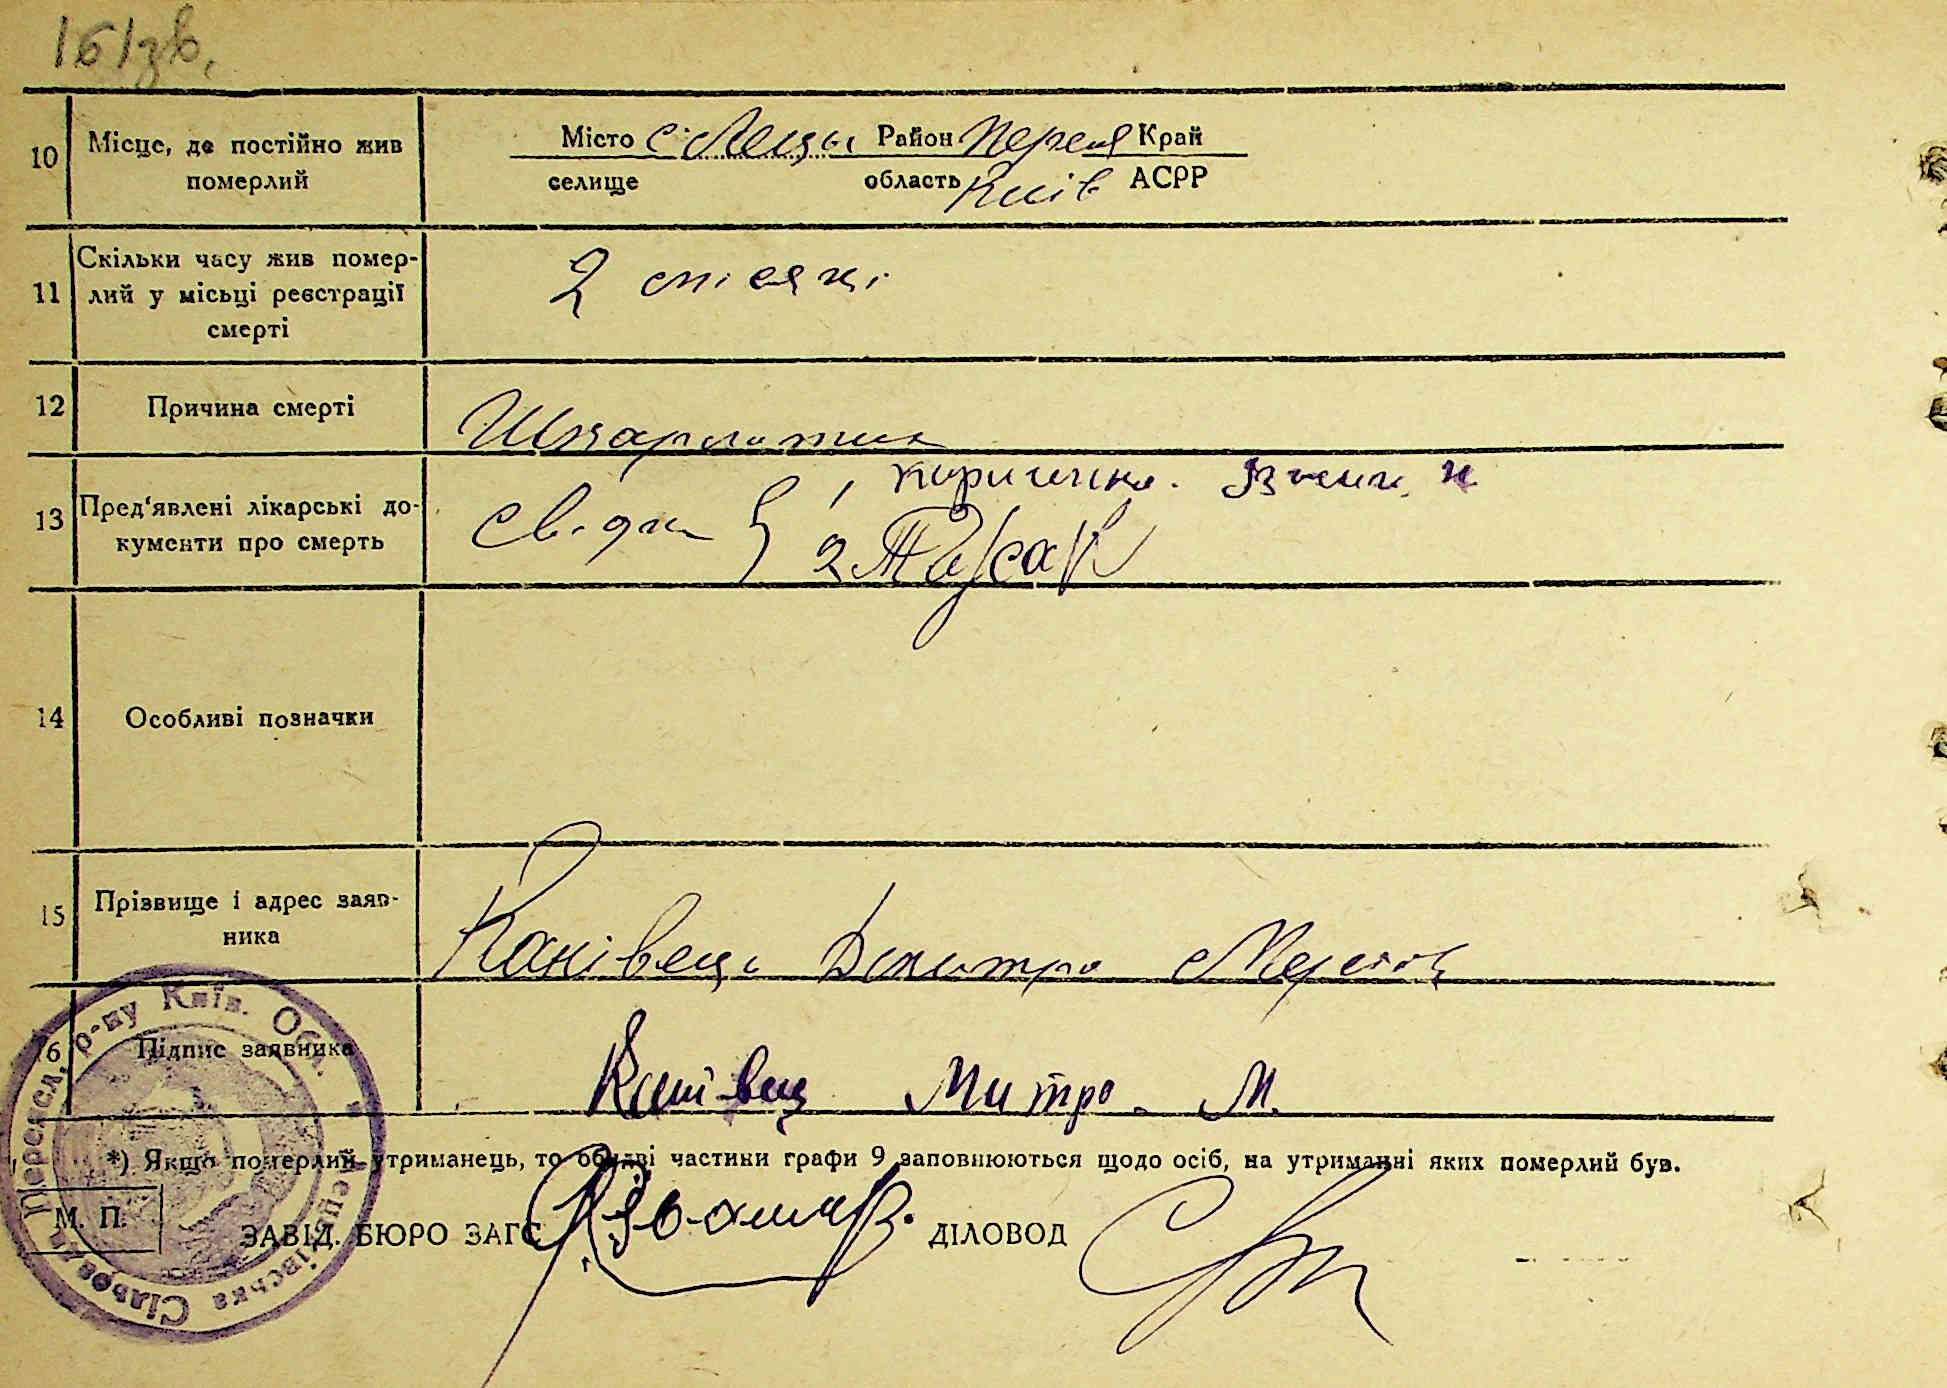 161зв.
10 Місце, де постійно жив померлий
Місто с Лецьки Район Переяс Край
селище область Київ АСРР
11 Скільки часу жив помер-
лий у місьці реєстрації
смерті
2 місяці
12 Причина смерті
Шкарлатина
13 Пред'явлені лікарські до-
кументи про смерть
Свідки 1,
2
14 Особливі позначки
15 Прізвище і адрес заяв-
ника
Канівець Дмитро
16 Підпис заявника
Канівец Митро М.
*) Якщо померлий утриманець, то обидві частини графи 9 заповнюються щодо осіб, на утриманні яких померлий був.
М. П.
ЗАВІД. БЮРО ЗАГС ДІЛОВОД
Переясл. р-ну Київ. Обл.
Сільрада